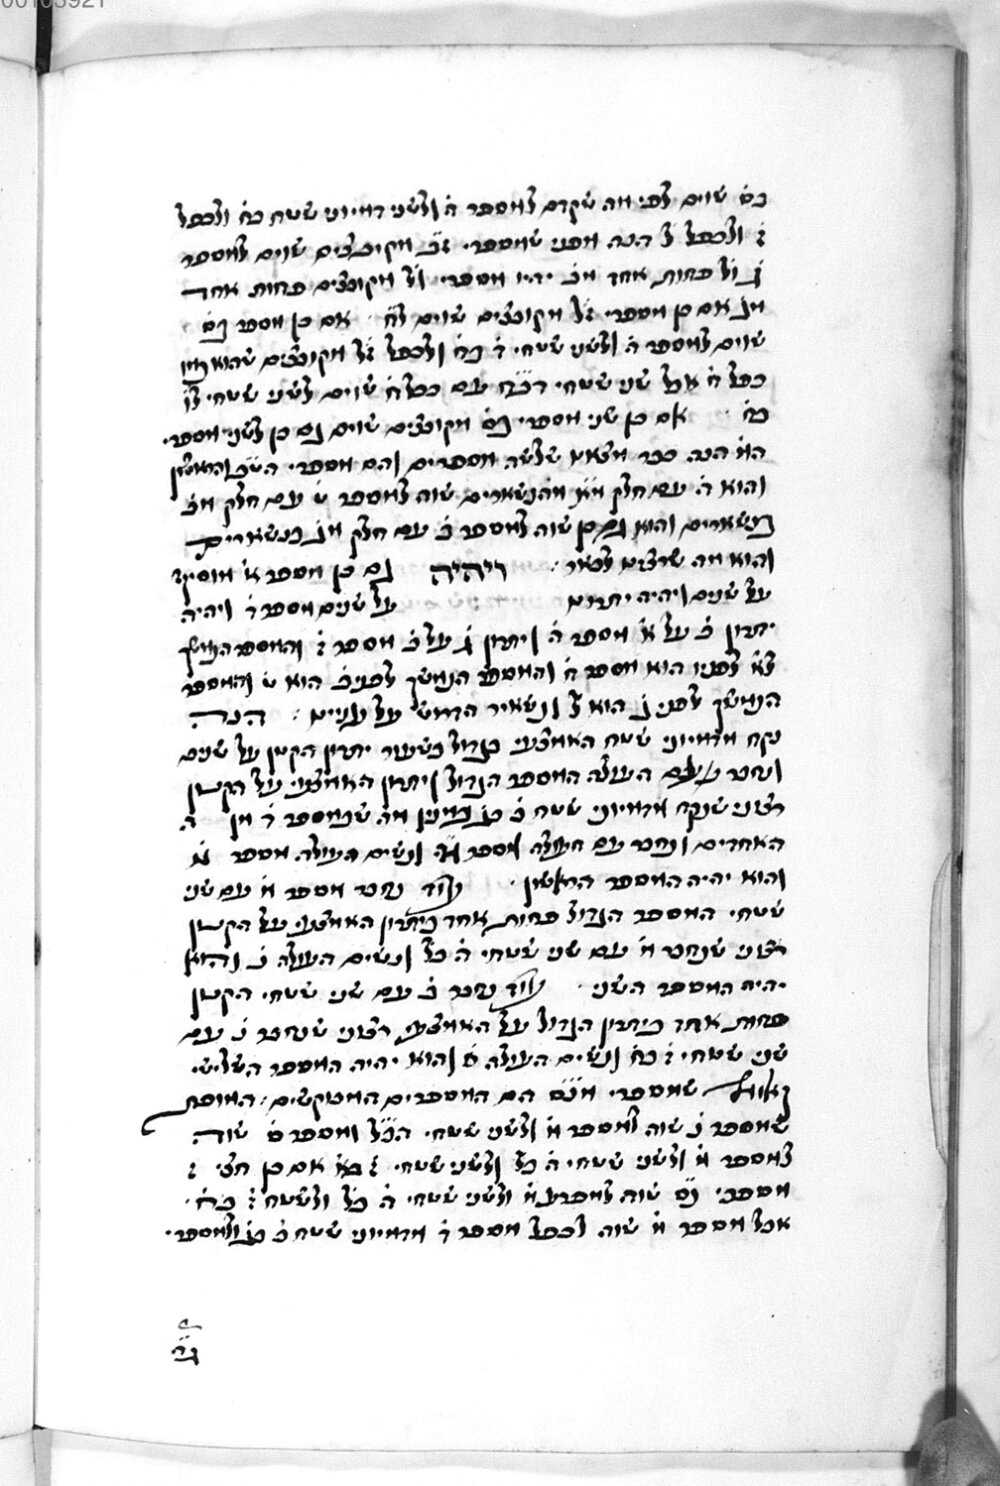 00103921
כס שוים לפי מה שקדם למספר ה ולשני דמיוני שטח כח ולכפל
ז ולכפל ל הנה מפני שמספרי זכ מקובצים שוים למספר
ג ול פחות אחד מב יהיו מספרי זל מקובצים פחות אחד
מג אם כן מספרי זל מקובצים שוים לח אם כן מספר נס
שוים למספר ה ולשני שטחי ז כח ולכפל זל מקובצים שהוא כמו
כפל ח אבל שני שטחי זכח עם כפל ח שוים לשני שטחי
כח אם כן שני מספרי נס מקובצים שוים גם כן לשני מספרי
המ הנה כבר מצאנו שלשה מספרים והם מספרי הראשון
והוא ה עם חלק מא מהנשארים שוה למספר ט עם חלק מב
בנשארים והוא גם כן שוה למספר כ עם חלק מג בנשארים
והוא מה שרצינו לבאר ויהיה גם כן מספר א מוסיף
על שנים ויהיה יתרונו על שנים מספר ד ויהיה
יתרון ב על א מספר ה ויתרון ג על ב מספר ז והמספר הנמשך
לא לפניו הוא מספר ח והמספר הנמשך לפני ב הוא ט והמספר
הנמשך לפני ג הוא ל ונשאיר הדרוש על עניינו הנה
נקח מדמיוני שטח האמצעי בגדול כשעור יתרון הקטן על שנים
ונחבר העולה המספר הגדול ויתרון האמצעי על הקטן
רצוני שנקח מדמיוני שטח כ כמנין מה שבמספר ד מן ה
האחדים ונחבר עם העולה מספר ונשים העולה מספר מ
והוא יהיה המספר הראשון עוד נחבר מספר מ עם שני
שטחי המספר הגדול פחות אחד ביתרון האמצעי על הקטן
רצוני שנחבר מ עם שני שטחי ה כל ונשים העולה נ והוא
יהיה המספר השני עוד נחבר נ עם שני שטחי הקטן
פחות אחד ביתרון הגדול על האמצעי רצוני שנחבר נ עם
שני שטחי ז כח ונשים העולה ס והוא יהיה המספר השלישי
ואומר שמספרי מנס הם המספרים המבוקשים המופת
שמספר נ שוה למספר מ ולשני שטחי הכל ומספר ס שוה
למספר מ ולשני שטחי ה כל ולשני שטחי ז אם כן חצי
מספרי נס שוה למספר מ ולשני שטחי ה כל ולשטח ז כח
אבל מספר מ שוה לכפל מספר ד מדמיוני שטח כ ולמספרי